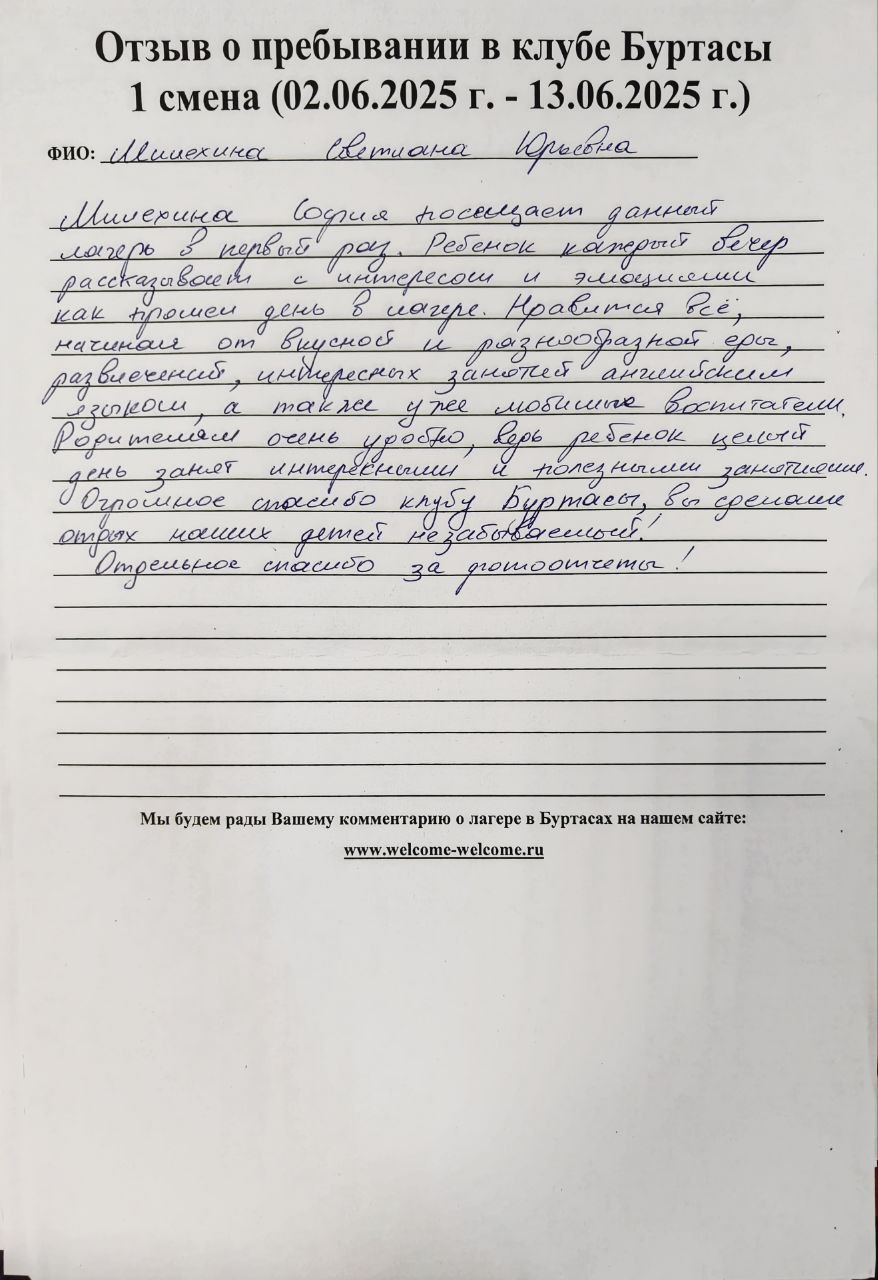 Отзыв о пребывании в клубе Буртасы
1 смена (02.06.2025 г. - 13.06.2025 г.)
ФИО: Милехина Светлана Юрьевна
Милехина София посещает данный
лагерь в первый раз. Ребенок каждый вечер
рассказывает с интересом и эмоциями
как прошел день в лагере. Нравится всё,
начиная от вкусной и разнообразной еды,
развлечений, интересных занятий английским
языком, а также уже любимые воспитатели.
Родителям очень удобно, ведь ребенок целый
день занят интересными и полезными занятиями.
Огромное спасибо клубу Буртасы, вы сделали
отдых наших детей незабываемый!
Отдельное спасибо за фотоотчеты!
Мы будем рады Вашему комментарию о лагере в Буртасах на нашем сайте:
www.welcome-welcome.ru